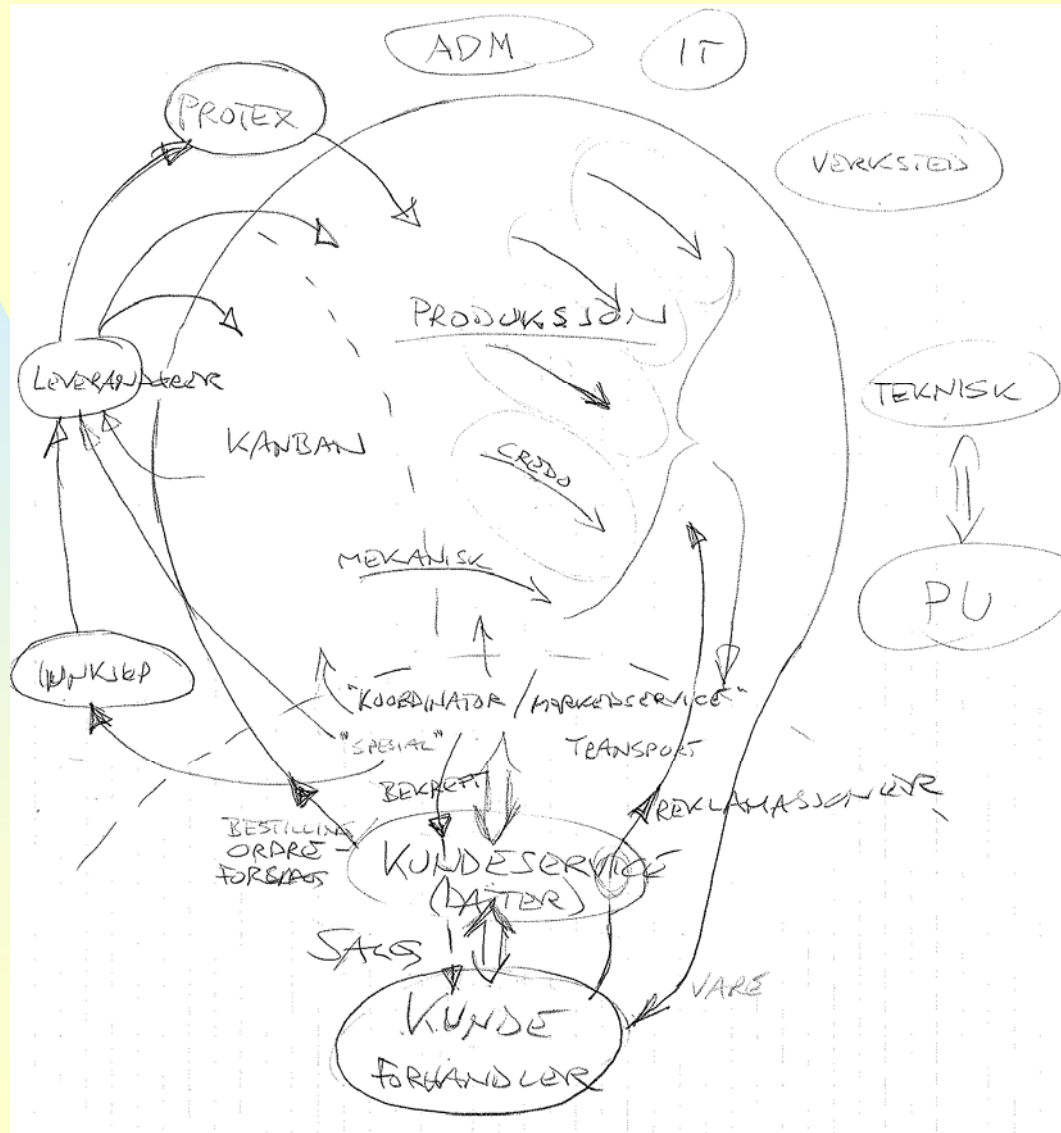 ADM
IT
PROTEX
VERKSTED
PRODUKSJON
LEVERANDØRER
TEKNISK
KANBAN
CREDO
MEKANISK
PU
INNKJØP
"KOORDINATOR / MARKEDSERVICE"
"SPESIAL"
TRANSPORT
BEKREFT
REKLAMASJONER
BESTILLING
ORDRE-
FORSLAG
KUNDESERVICE
(DATTER)
SALG
VARE
KUNDE
FORHANDLER